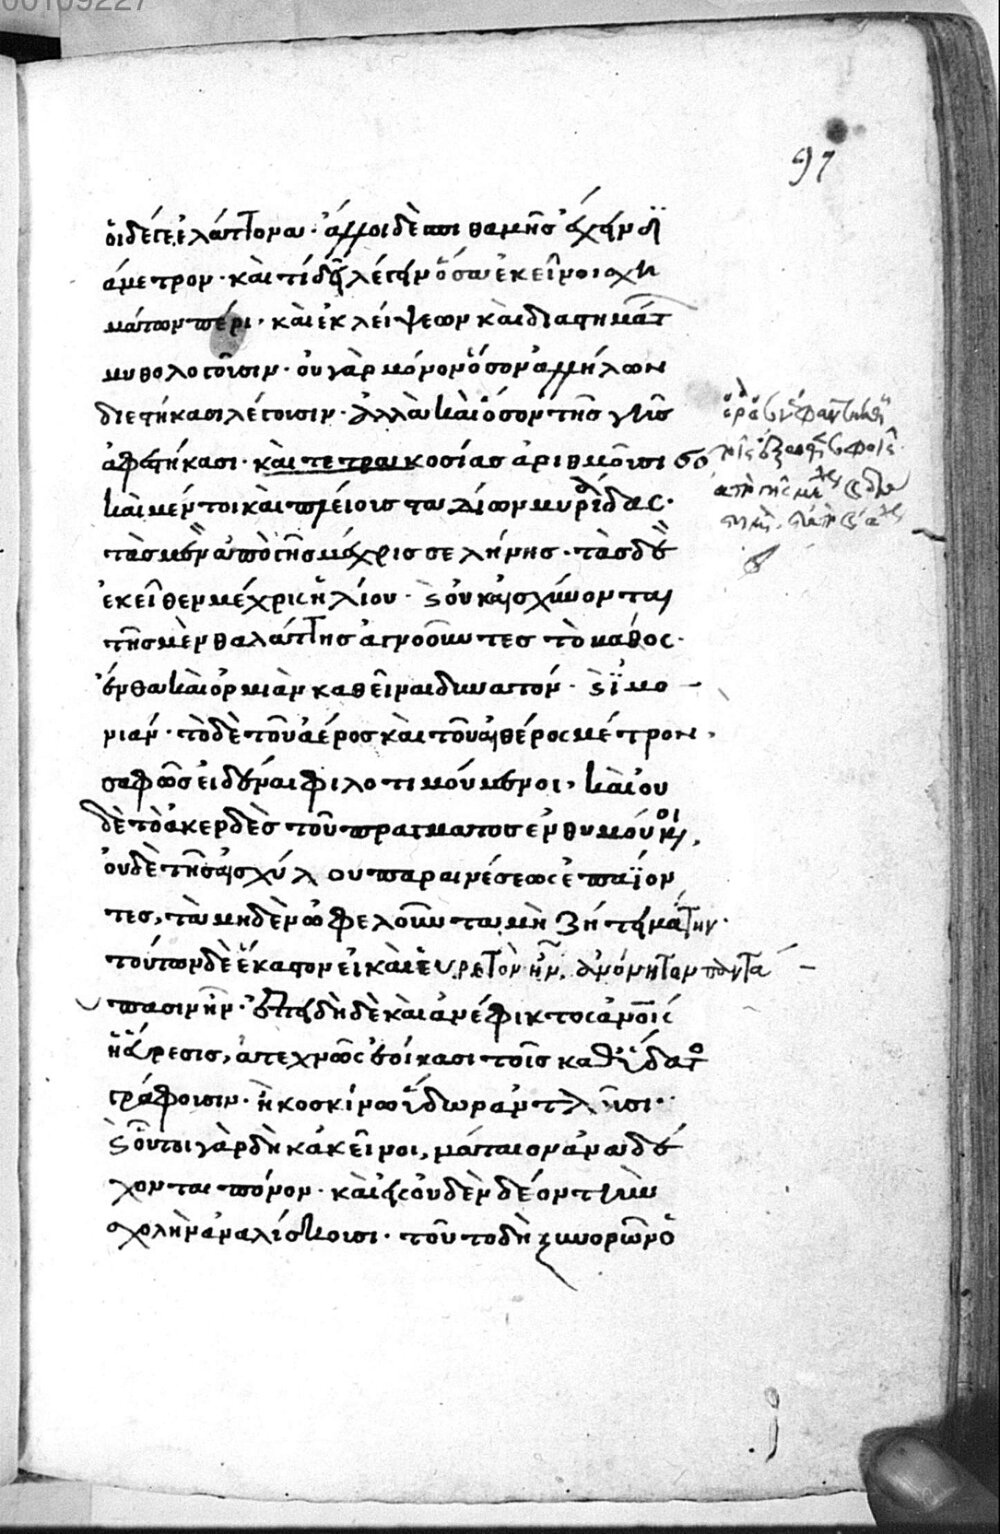 00109227
97
οἱ δέ γε ἐλάττονα · ἄλλοι δὲ σπιθαμῆς ἔχειν δι
άμετρον · καὶ τί δεῖ λέγειν ὅσα ἐκεῖνοι σχη
μάτων πέρι · καὶ ἐκλείψεων καὶ διαστημάτ
μυθολογοῦσιν · οὐ γὰρ μόνον ὅσον ἀλλήλων
διεστήκασι λέγουσιν · ἀλλὰ καὶ ὅσον τῆς γῆς
ἀφεστήκασι · καὶ τετρακοσίας ἀριθμοῦσι
καὶ μέντοι καὶ πλείους σταδίων μυριάδας ·
τὰς μὲν ἀπὸ γῆς μέχρι σελήνης · τὰς δὲ
ἐκεῖθεν μέχρις ἡλίου · καὶ οὐκ αἰσχύνονται
τῆς μὲν θαλάττης ἀγνοοῦντες τὸ βάθος ·
ἔνθα καὶ ὁρμιὰν καθεῖναι δυνατόν · καὶ ἱμο
νιάν · τὸ δὲ τοῦ ἀέρος καὶ τοῦ αἰθέρος μέτρον ·
σαφῶς εἰδέναι φιλοτιμούμενοι · καὶ οὐ
δὲ τὸ ἀκερδὲς τοῦ πράγματος ἐνθυμούνοι,
οὐδὲ τῆς αἰσχύλου παραινέσεως ἐπαΐον
τες, τὰ μηδὲν ὠφελοῦντα μὴ ζήτει μάτην ·
τούτων δὲ ἕκαστον εἰ καὶ εὑρετὸν ἦν, ἀνόνητον παντά
πασιν ἦν · ἐπειδὴ δὲ καὶ ἀνέφικτος
ἡ εὕρεσις, ἀτεχνῶς ἐοίκασι τοῖς καθ ὕδατος
γράφουσιν · ἢ κοσκίνω ὕδωρ ἀντλοῦσι ·
καὶ οὗτοι γὰρ δὴ κἀκεῖνοι, μάταιον ἀναδέ
χονται πόνον · καὶ εἰς οὐδὲν δέον τὴν
σχολὴν ἀναλίσκουσι · τοῦτο δὴ ξυνορῶν ὁ